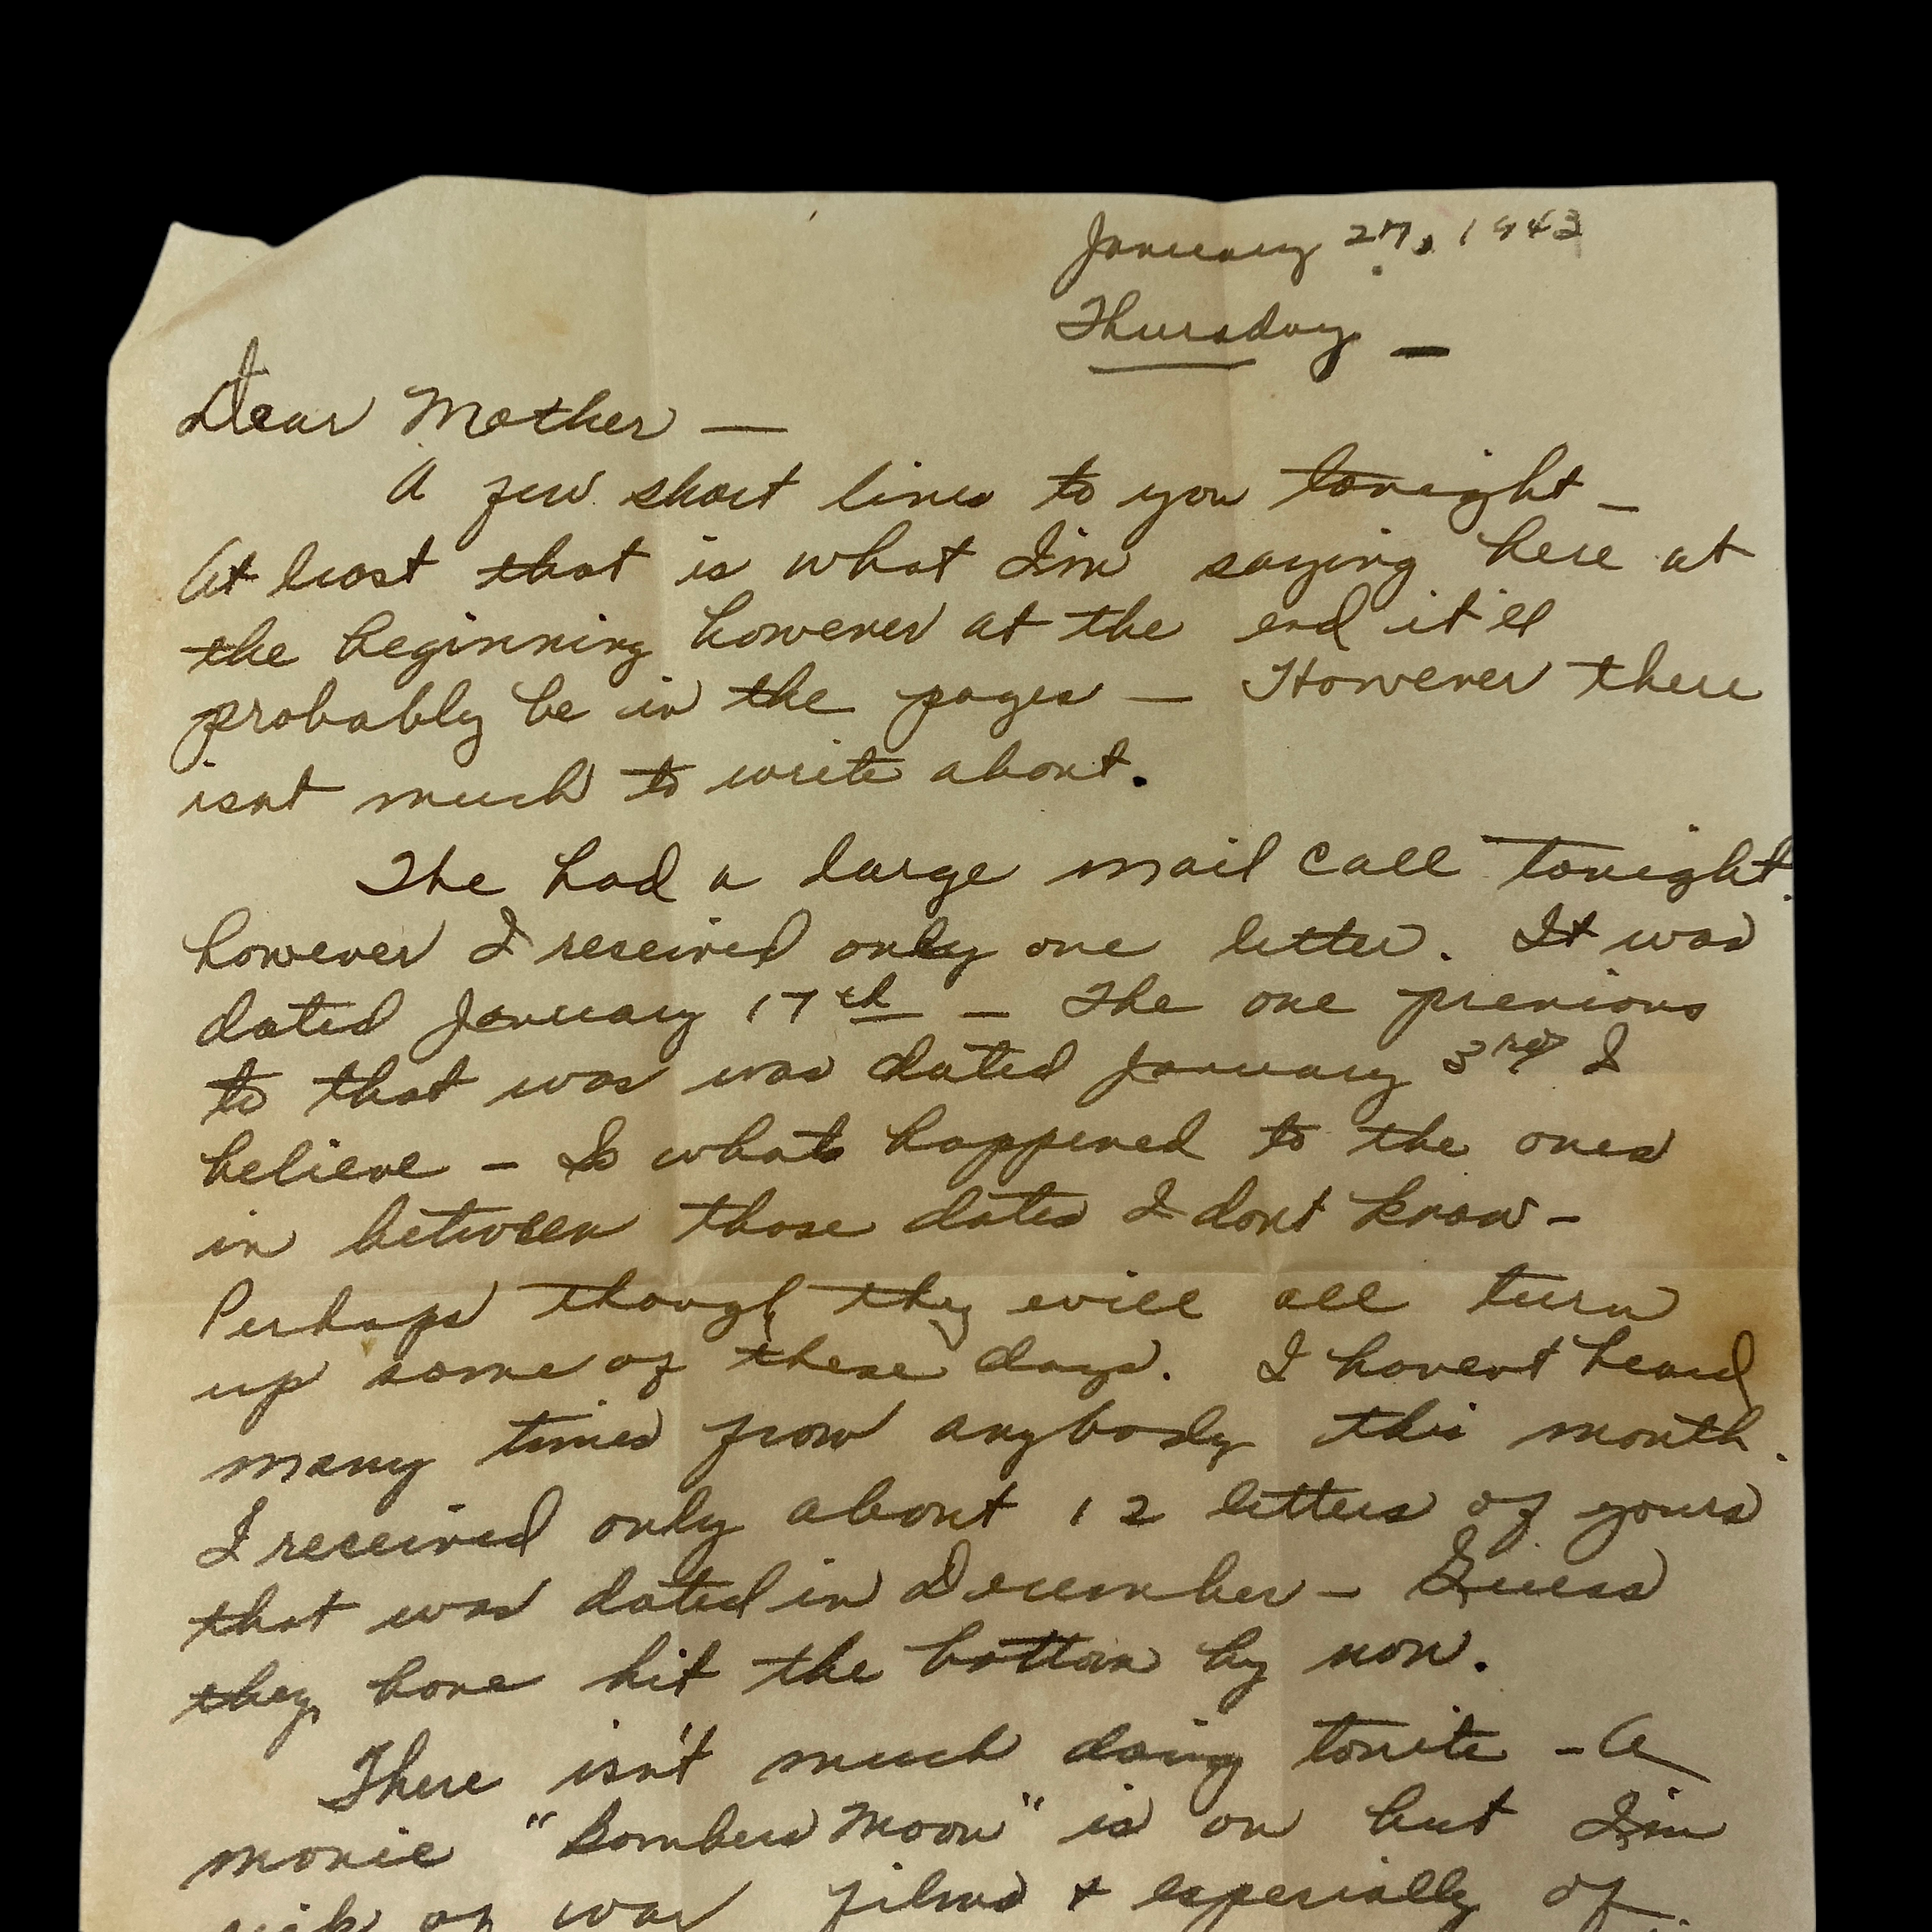 January 27, 1943
Thursday —
Dear Mother —
A few short lines to you tonight —
At least that is what I'm saying here at
the beginning however at the end it'll
probably be in the pages — However there
isnt much to write about.
The had a large mail call tonight.
however I received only one letter. It was
dated January 17th — The one previous
to that was was dated January 3rd I
believe — So whats happened to the ones
in between those dates I dont know —
Perhaps though they will all turn
up some of these days. I havent heard
many times from anybody this month.
I received only about 12 letters of yours
that was dated in December — Guess
they have hit the bottom by now.
There isn't much doing tonite — A
movie "Bombers Moon" is on but I'm
sick of war films + especially of